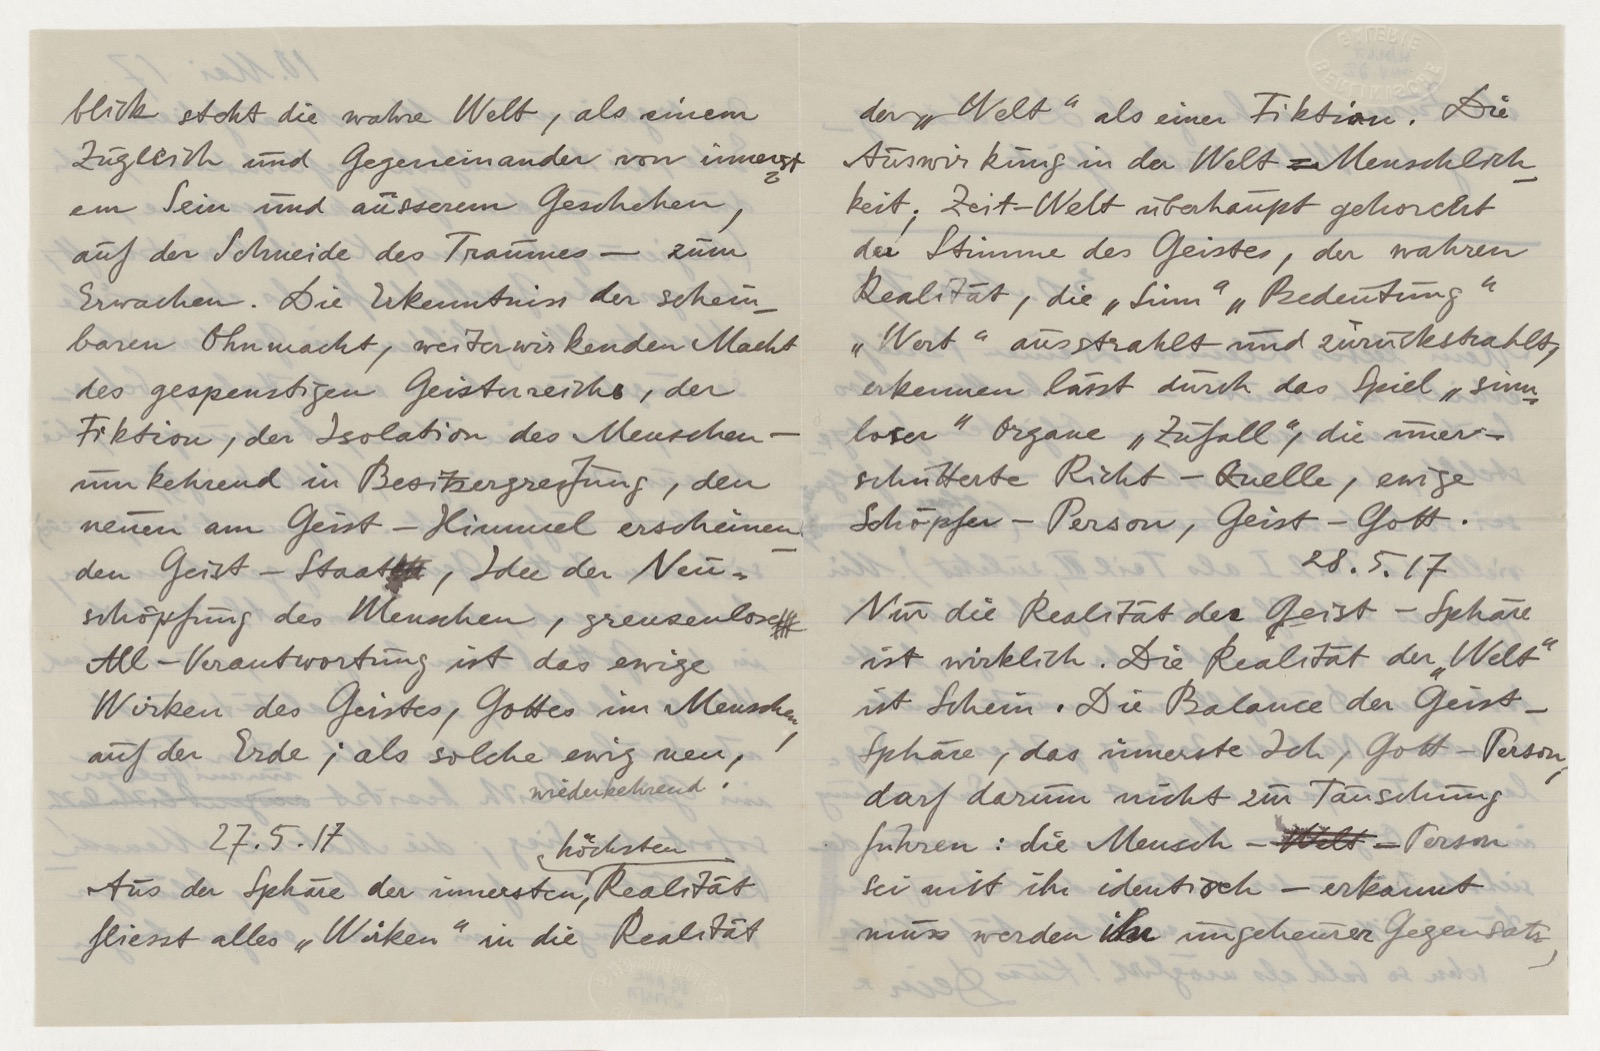 blick steht die wahre Welt, als einem
Zugleich und Gegeneinander von innerst
em Sein und äusserem Geschehen,
auf der Schneide des Traumes — zum
Erwachen. Die Erkenntniss der schein-
baren Ohnmacht, weiterwirkenden Macht
des gespenstigen Geisterreichs, der
Fiktion, der Isolation des Menschen —
umkehrend in Besitzergreifung, den
neuen am Geist-Himmel erscheinen-
den Geist-Staat, Idee der Neu-
schöpfung des Menschen, grenzenlose
All-Verantwortung ist das ewige
Wirken des Geistes, Gottes im Menschen,
auf der Erde; als solche ewig neu,
wiederkehrend.
27.5.17
höchsten
Aus der Sphäre der innersten, Realität
fliesst alles „Wirken“ in die Realität
der „Welt“ als einer Fiktion. Die
Auswirkung in der Welt = Menschlich-
keit, Zeit-Welt überhaupt gehorcht
der Stimme des Geistes, der wahren
Realität, die „Sinn“ „Bedeutung“
„Wert“ ausstrahlt und zurückstrahlt,
erkennen lässt durch das Spiel „sinn-
loser“ Organe „Zufall“, die uner-
schütterte Richt-Quelle, ewige
Schöpfer-Person, Geist-Gott.
28.5.17
Nur die Realität der Geist-Sphäre
ist wirklich. Die Realität der „Welt“
ist Schein. Die Balance der Geist-
Sphäre, das innerste Ich, Gott-Person,
darf darum nicht zur Täuschung
führen: die Mensch-Welt-Person
sei mit ihr identisch — erkannt
muss werden ihr ungeheurer Gegensatz,